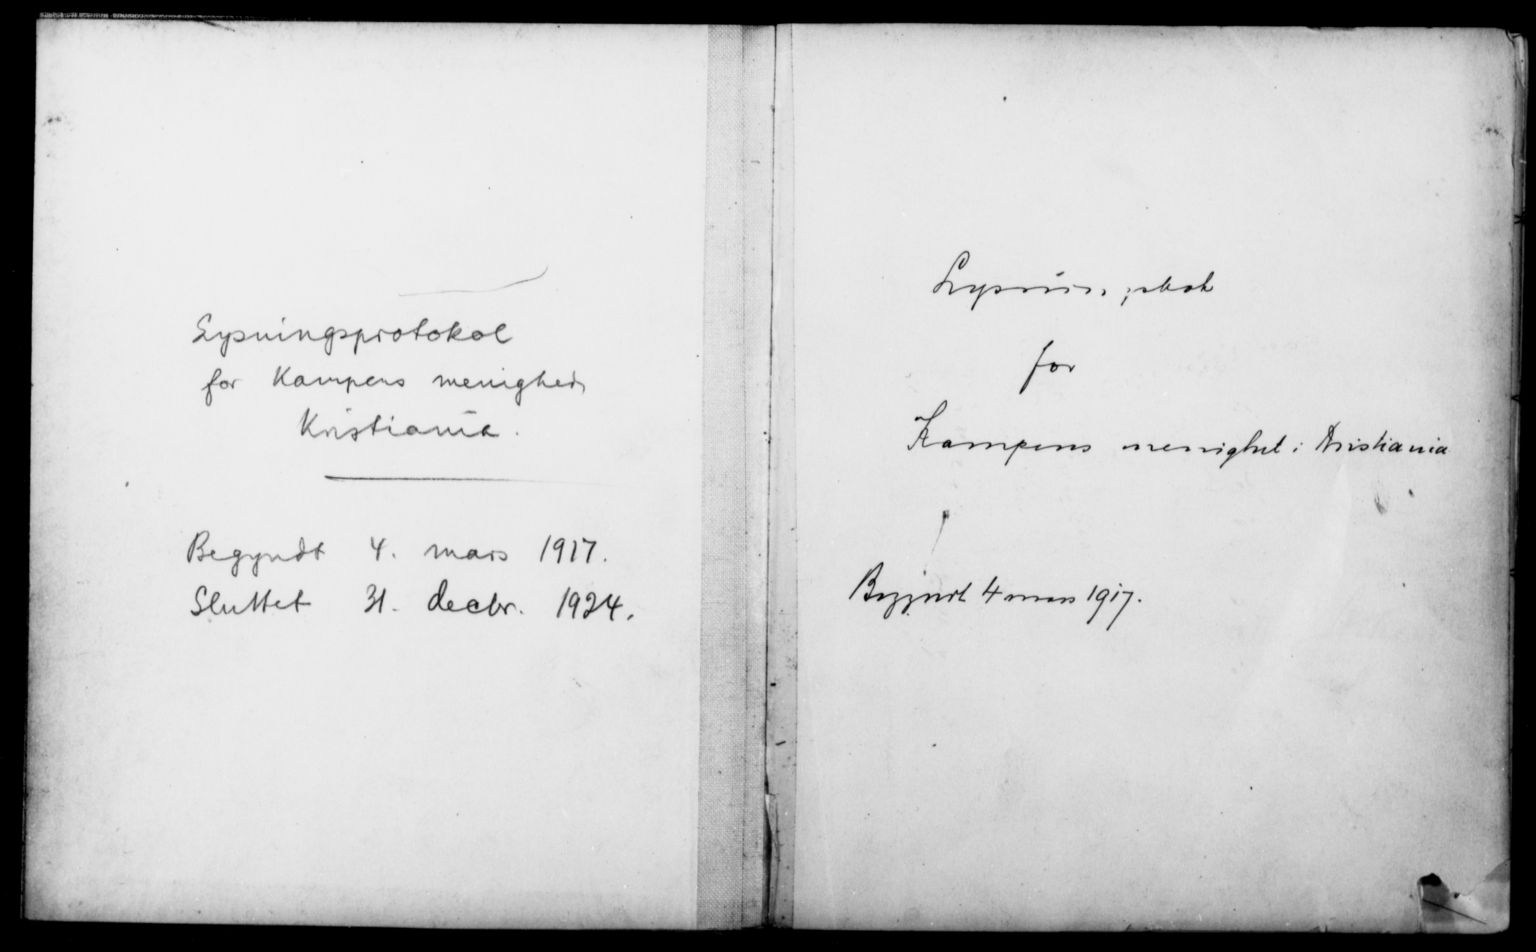 Lysningsprotokol
for Kampens menighed,
Kristiania.
Begyndt 4. mars 1917.
Sluttet 31. decbr. 1924.
Lysningsbok
for
Kampens menighet i Kristiania
Begyndt 4 mars 1917.